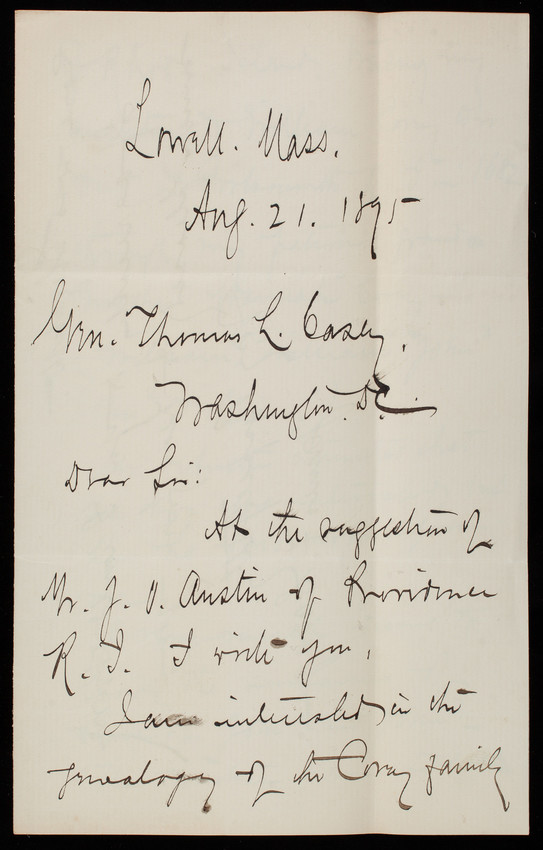 Lowell. Mass.
Aug. 21. 1895
Gen. Thomas L. Casey,
Washington. D.C.
Dear Sir:
At the suggestion of
Mr. J. O. Austin of Providence
R. I. I write you.
I am interested in the
genealogy of the Corey family